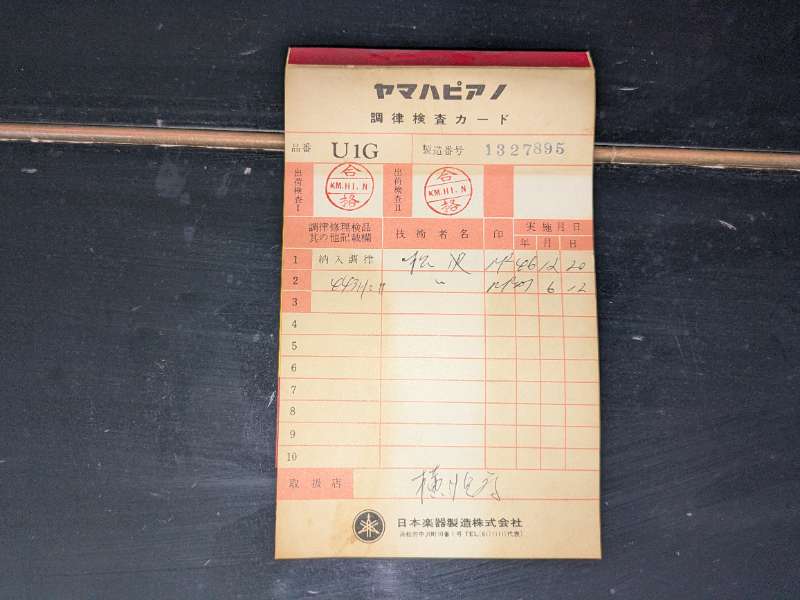 ヤマハピアノ
調律検査カード
品番 U1G 製造番号 1327895
出荷検査I 合格 KM.HI.N 出荷検査II 合格 KM.HI.N
調律修理検品其の他記載欄 技術者名 印 実施月日 年 月 日
1 納入調律 46 12 20
2 〃 6 12
3
4
5
6
7
8
9
10
取扱店
日本楽器製造株式会社